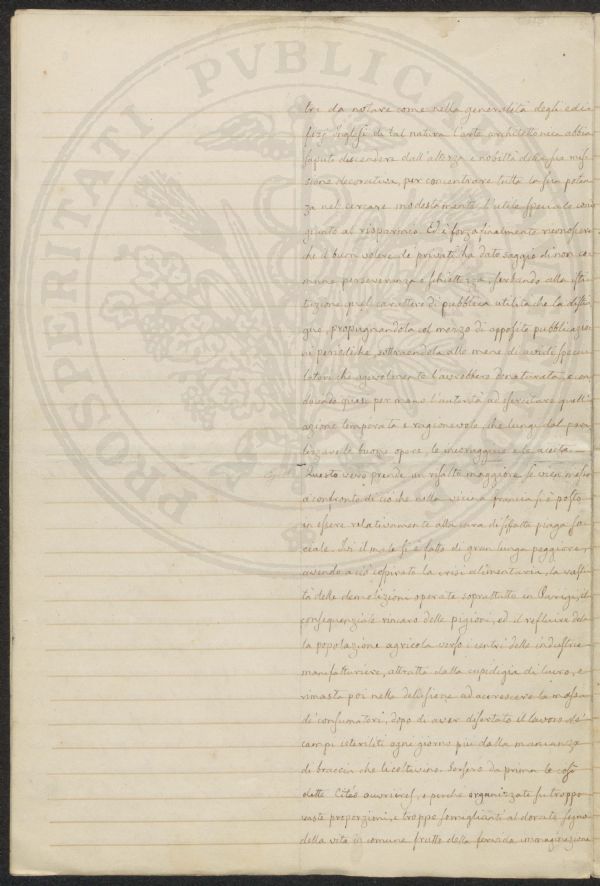 PROSPERITATI PVBLICAE
tre da notare come nella generalità degli edi-
fizj Inglesi di tal natura l'arte architettonica abbia
saputo discendere dall'altezza e nobiltà della sua mis-
sione decorativa, per concentrare tutta la sua poten-
za nel cercare modestamente l'utile speciale con-
giunto al risparmio. Ed è forza finalmente riconoscere
che il buon volere de' privati ha dato saggio di non co-
mune perseveranza e schiettezza, serbando alla isti-
tuzione quel carattere di pubblica utilità che la distin-
gue, propugnandola col mezzo di apposite pubblicazio-
ni periodiche, sottraendola alle mene di avidi specu-
latori che agevolmente l'avrebbero denaturata, e con-
ducendo quasi per mano l'autorità ad esercitare quell'
azione temperata e ragionevole, che lungi dal para-
lizzare le buone opere, le incoraggia e le aiuta. —
Questo vero prende un risalto maggiore se vien messo
a confronto di ciò che nella vicina francia si è posto
in essere relativamente alla cura di siffatta piaga so-
ciale. Ivi il male si è fatto di gran lunga peggiore,
avendo a ciò cospirato la crisi alimentaria, la vasti-
tà delle demolizioni operate soprattutto in Parigi, il
conseguenziale rincaro delle pigioni, ed il refluire del-
la popolazione agricola verso i centri delle industrie
manifatturiere, attratta dalla cupidigia di lucro, e
rimasta poi nella delusione ad accrescere la massa
de' consumatori, dopo di aver disertato il lavoro de'
campi isteriliti ogni giorno più dalla mancanza
di braccia che li coltivino. Sorsero da prima le così
dette Cités ouvrières, e perché organizzate su troppo
vaste proporzioni, e troppo somiglianti al dorato sogno
della vita in comune frutto della fervida immaginazione